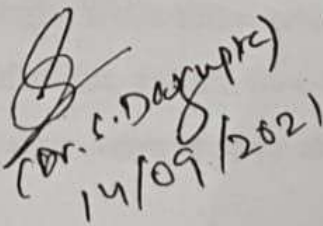 (Dr. S. Dasgupta)
14/09/2021